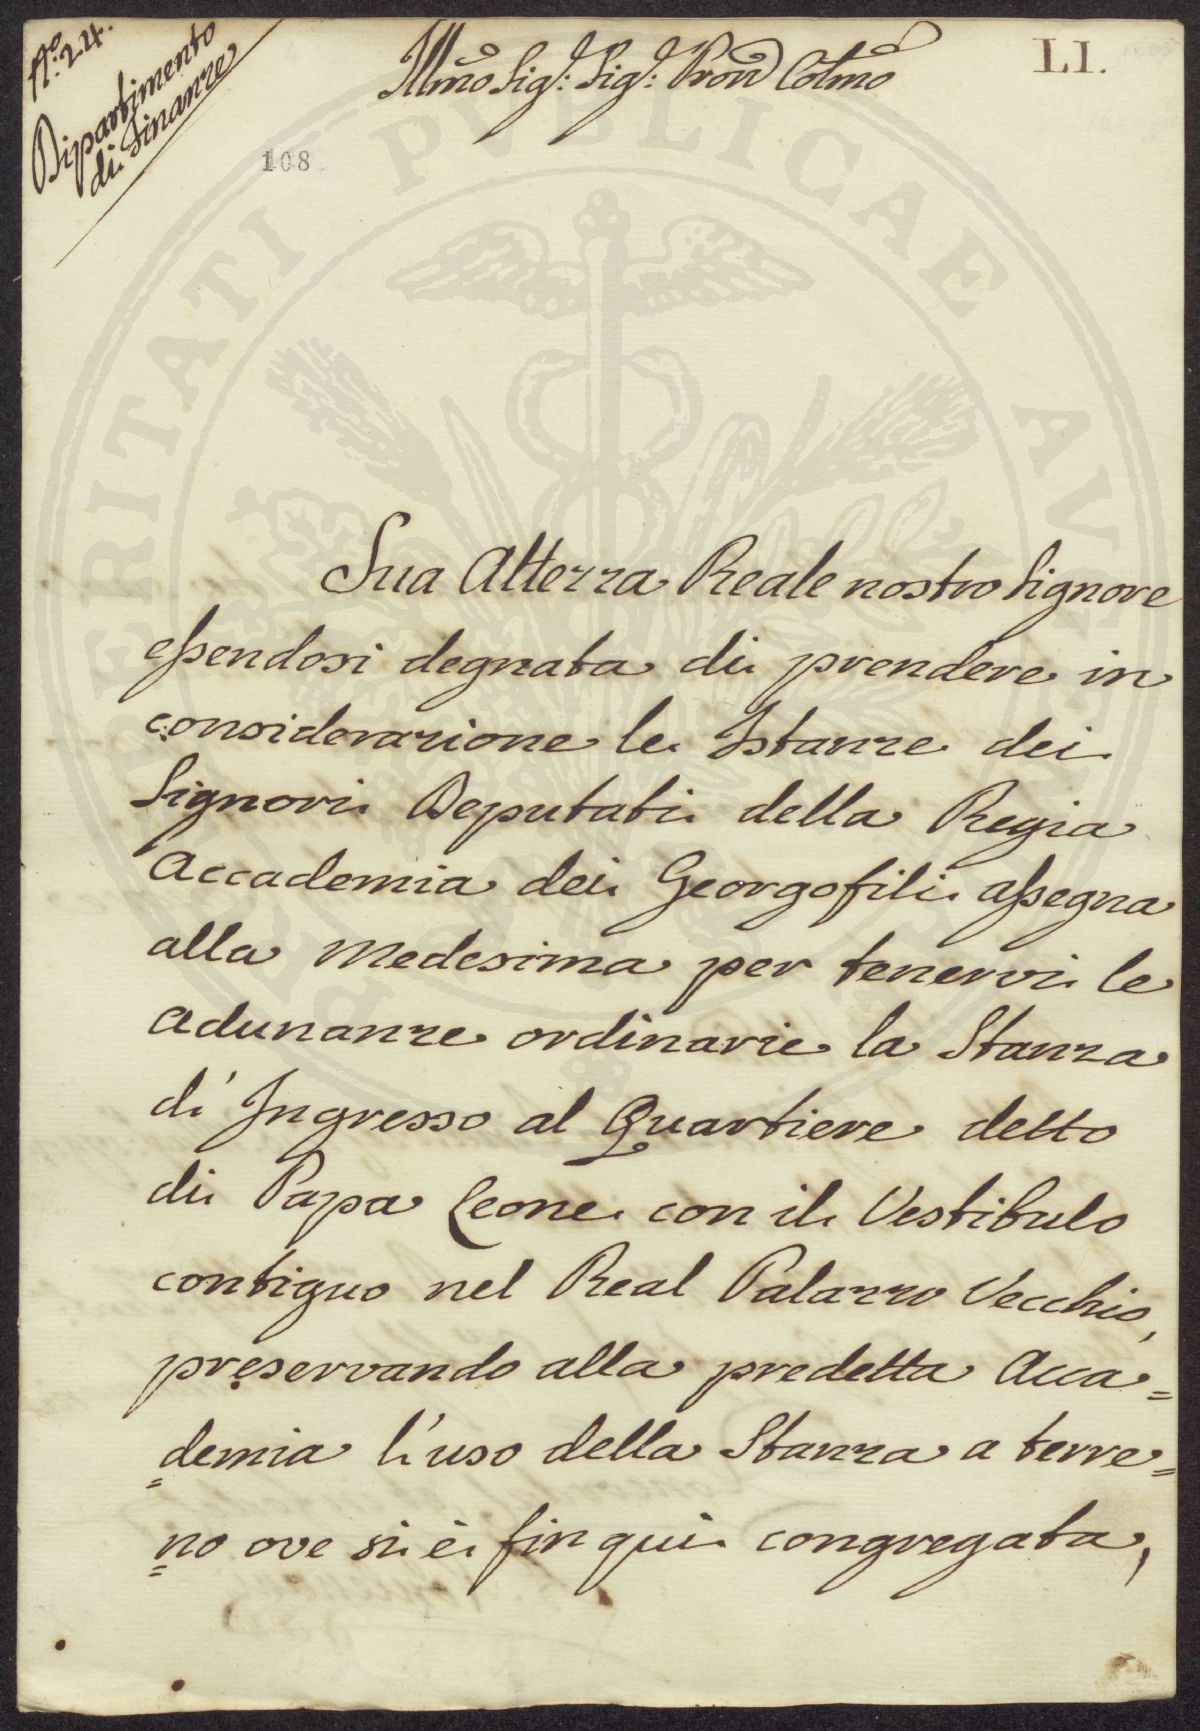 N.° 24.
Dipartimento
di Finanze
Illmo Sig.r Sig.r Pron Colmo
LI.
108
PROSPERITATI PUBLICAE AUGENDAE
Sua Altezza Reale nostro Signore
essendosi degnata di prendere in
considerazione le Istanze dei
Signori Deputati della Regia
Accademia dei Georgofili assegna
alla Medesima per tenervi le
adunanze ordinarie la Stanza
d'Ingresso al Quartiere detto
di Papa Leone con il Vestibulo
contiguo nel Real Palazzo Vecchio,
preservando alla predetta Acca=
=demia l'uso della Stanza a terre=
=no ove si è fin qui congregata,